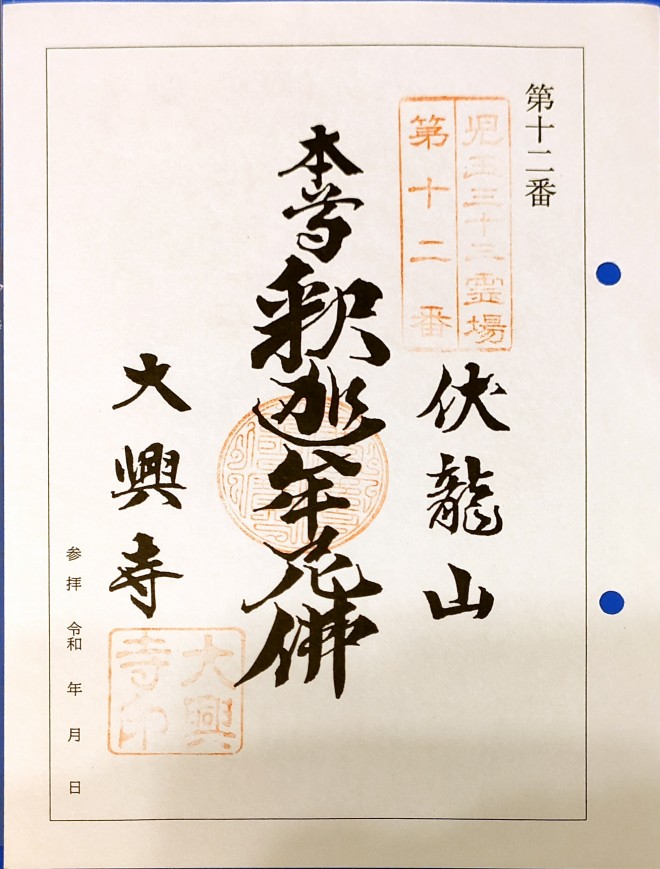 第十二番
児玉三十三霊場
第十二番
伏龍山
本尊
釈迦牟尼佛
大興寺
大興
寺印
参拝 令和 年 月 日